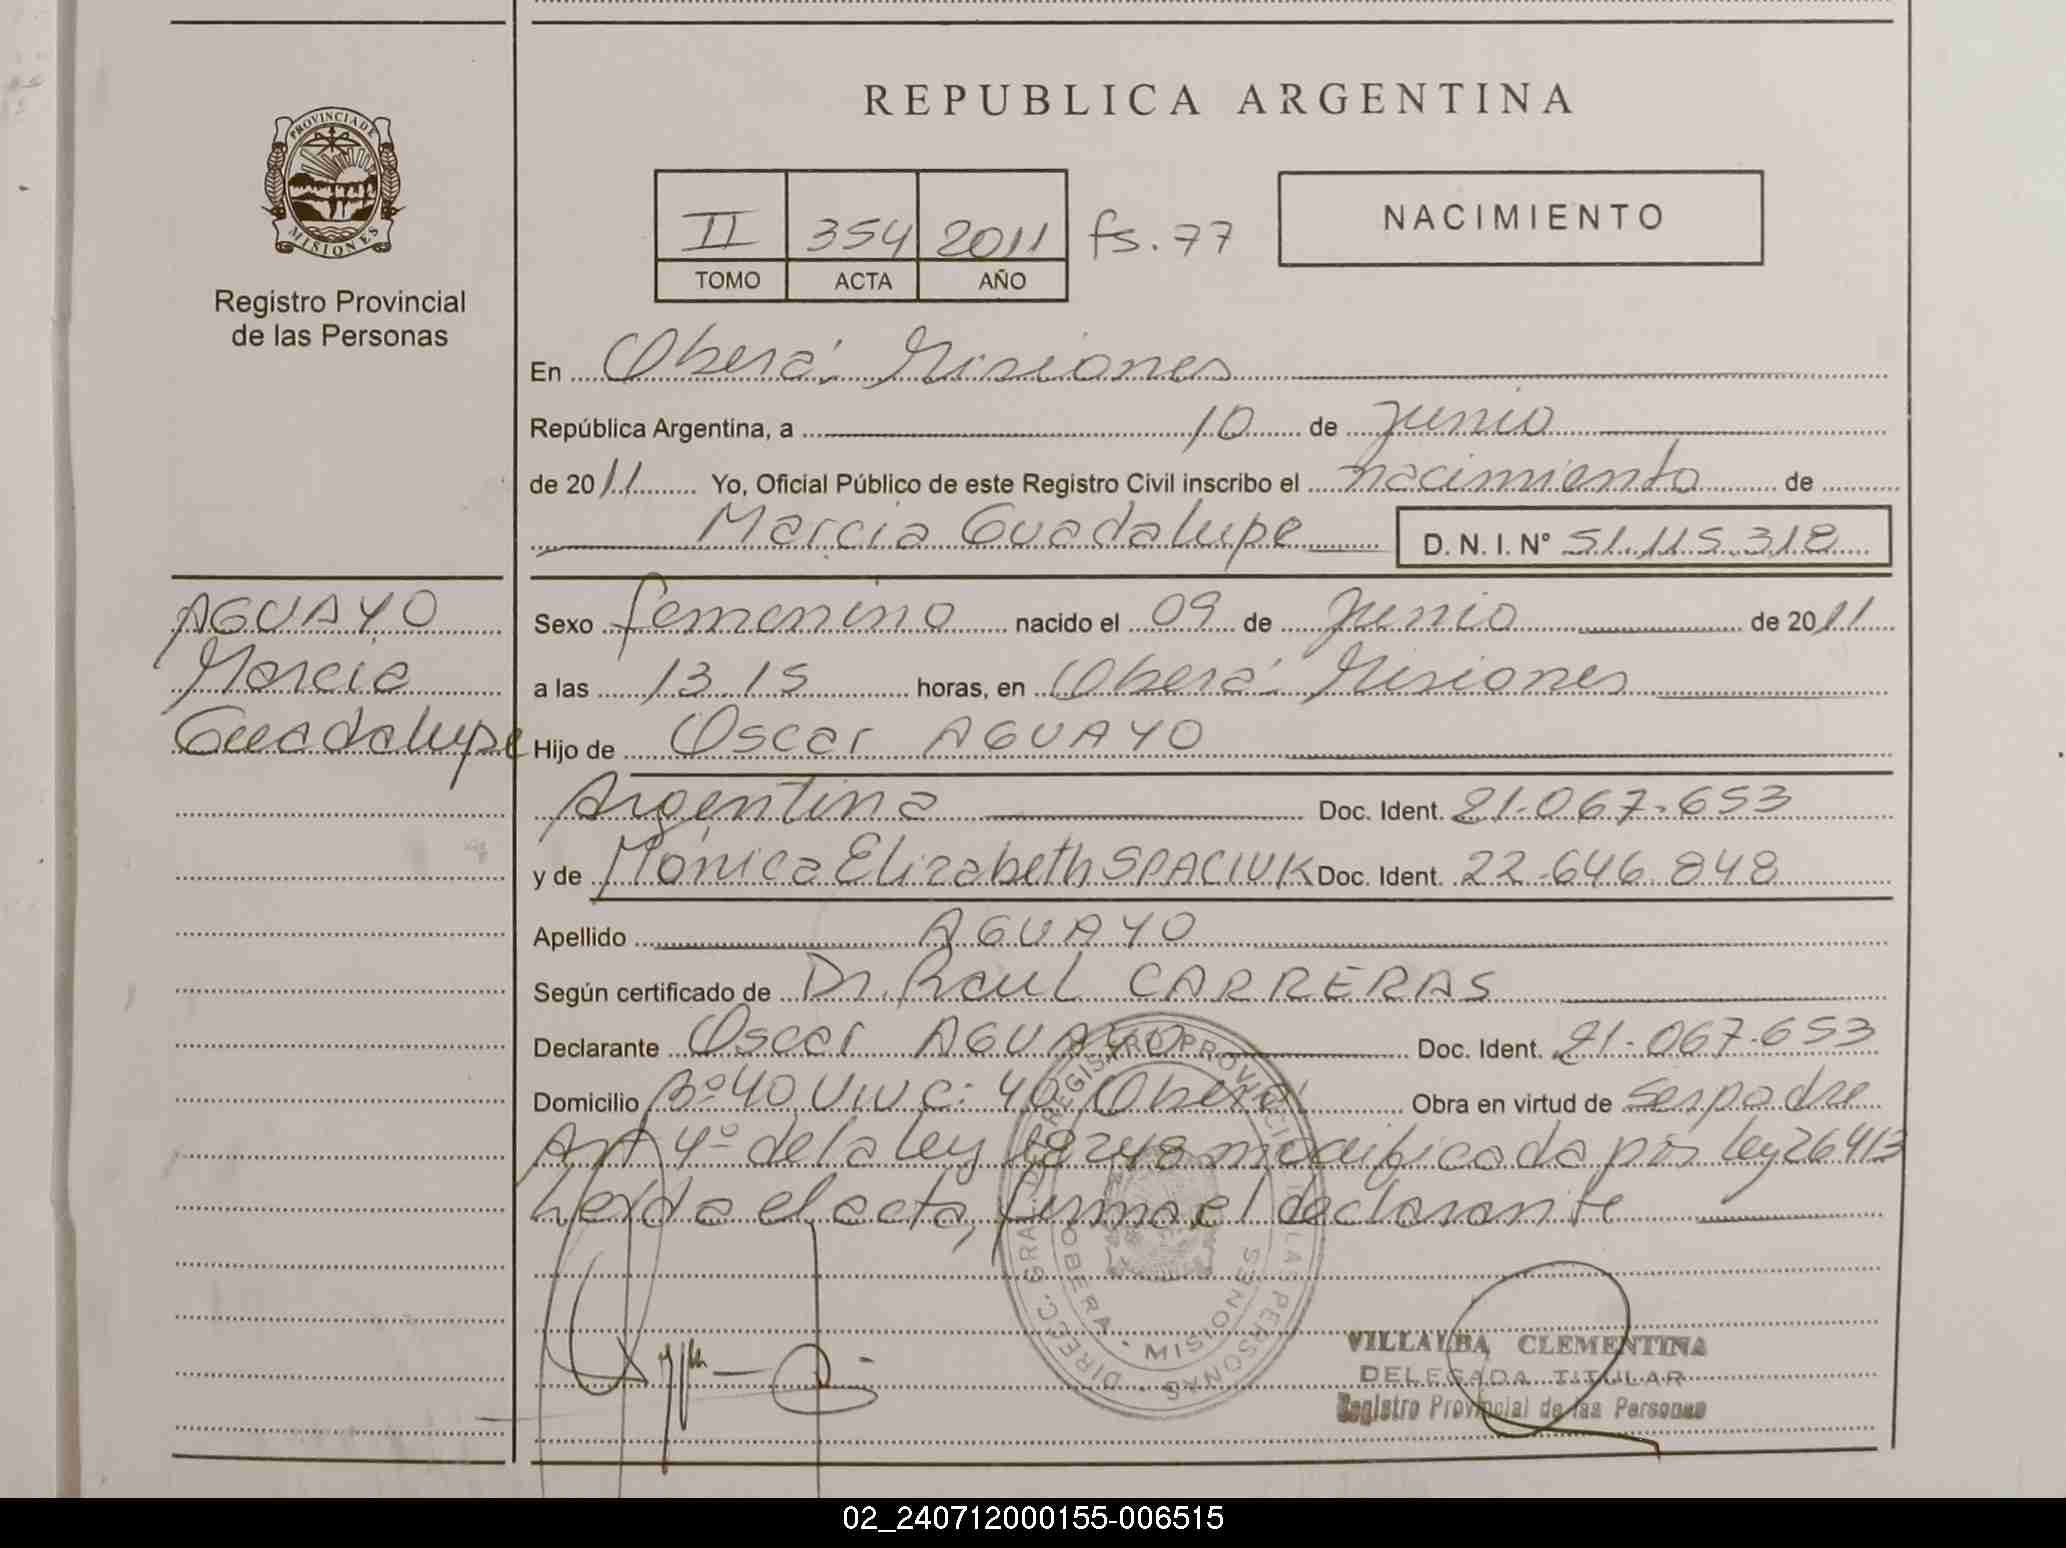 REPUBLICA ARGENTINA
PROVINCIA DE
MISIONES
Registro Provincial
de las Personas
II 354 2011 fs. 77
TOMO ACTA AÑO
NACIMIENTO
En Oberá: Misiones
República Argentina, a 10 de junio
de 2011 Yo, Oficial Público de este Registro Civil inscribo el nacimiento de
Marcia Guadalupe D. N. I. Nº 51.115.318
AGUAYO
Marcia
Guadalupe
Sexo femenino nacido el 09 de junio de 2011
a las 13.15 horas, en Oberá: Misiones
Hijo de Oscar AGUAYO
Argentina Doc. Ident. 21.067.653
y de Mónica Elizabeth SPACIUK Doc. Ident. 22.646.848
Apellido AGUAYO
Según certificado de Dr. Raul CARRERAS
Declarante Oscar AGUAYO Doc. Ident. 21.067.653
Domicilio Bº 40 Viv C: 40 Oberá Obra en virtud de ser padre
Art 4º de la ley 18248 modificada por ley 26413
Leída el acta, firma el declarante
DIRECC. GRAL. DEL REGISTRO PROVINCIAL DE LAS PERSONAS
OBERA - MISIONES
VILLALBA CLEMENTINA
DELEGADA TITULAR
Registro Provincial de las Personas
02_240712000155-006515